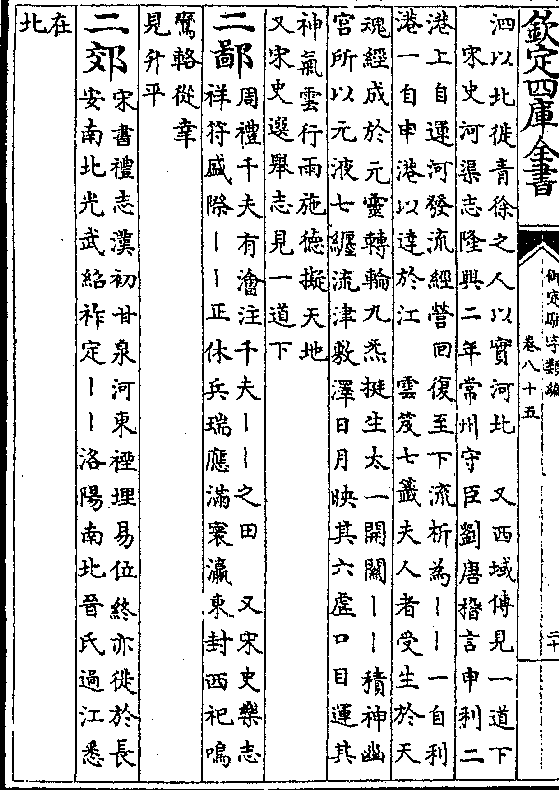 欽定四庫全書
御定駢字類編
卷八十五
二十
泗以北徙青徐之人以實河北　又西域傳見一道下
宋史河渠志隆興二年常州守臣劉唐稽言申利二
港上自運河發流經營回復至下流析為丨丨一自利
港一自申港以達於江　雲笈七籤夫人者受生於天
魂經成於元靈轉輪九炁挺生太一開闢丨丨積神幽
宮所以元液七纏流津敷澤日月映其六虛口目運其
神氣雲行雨施德擬天地
又宋史選舉志見一道下
二鄙
周禮千夫有澮注千夫丨丨之田　又宋史樂志
祥符盛際丨丨正休兵瑞應滿寰瀛東封西祀鳴
鸞輅從幸
見升平
二郊
宋書禮志漢初甘泉河東禋埋易位終亦徙於長
安南北光武紹祚定丨丨洛陽南北晉氏過江悉
在
北